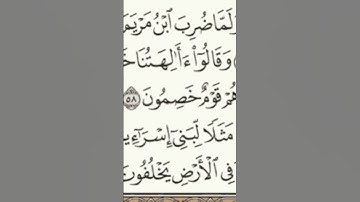 لَمَّا ضُرِبَ ٱبْنُ مَرْيَمَ
وَقَالُوٓا۟ ءَأَٰلِهَتُنَا خَ
هُمْ قَوْمٌ خَصِمُونَ ٥٨
مَثَلًا لِّبَنِىٓ إِسْرَٰٓءِي
فِى ٱلْأَرْضِ يَخْلُفُونَ